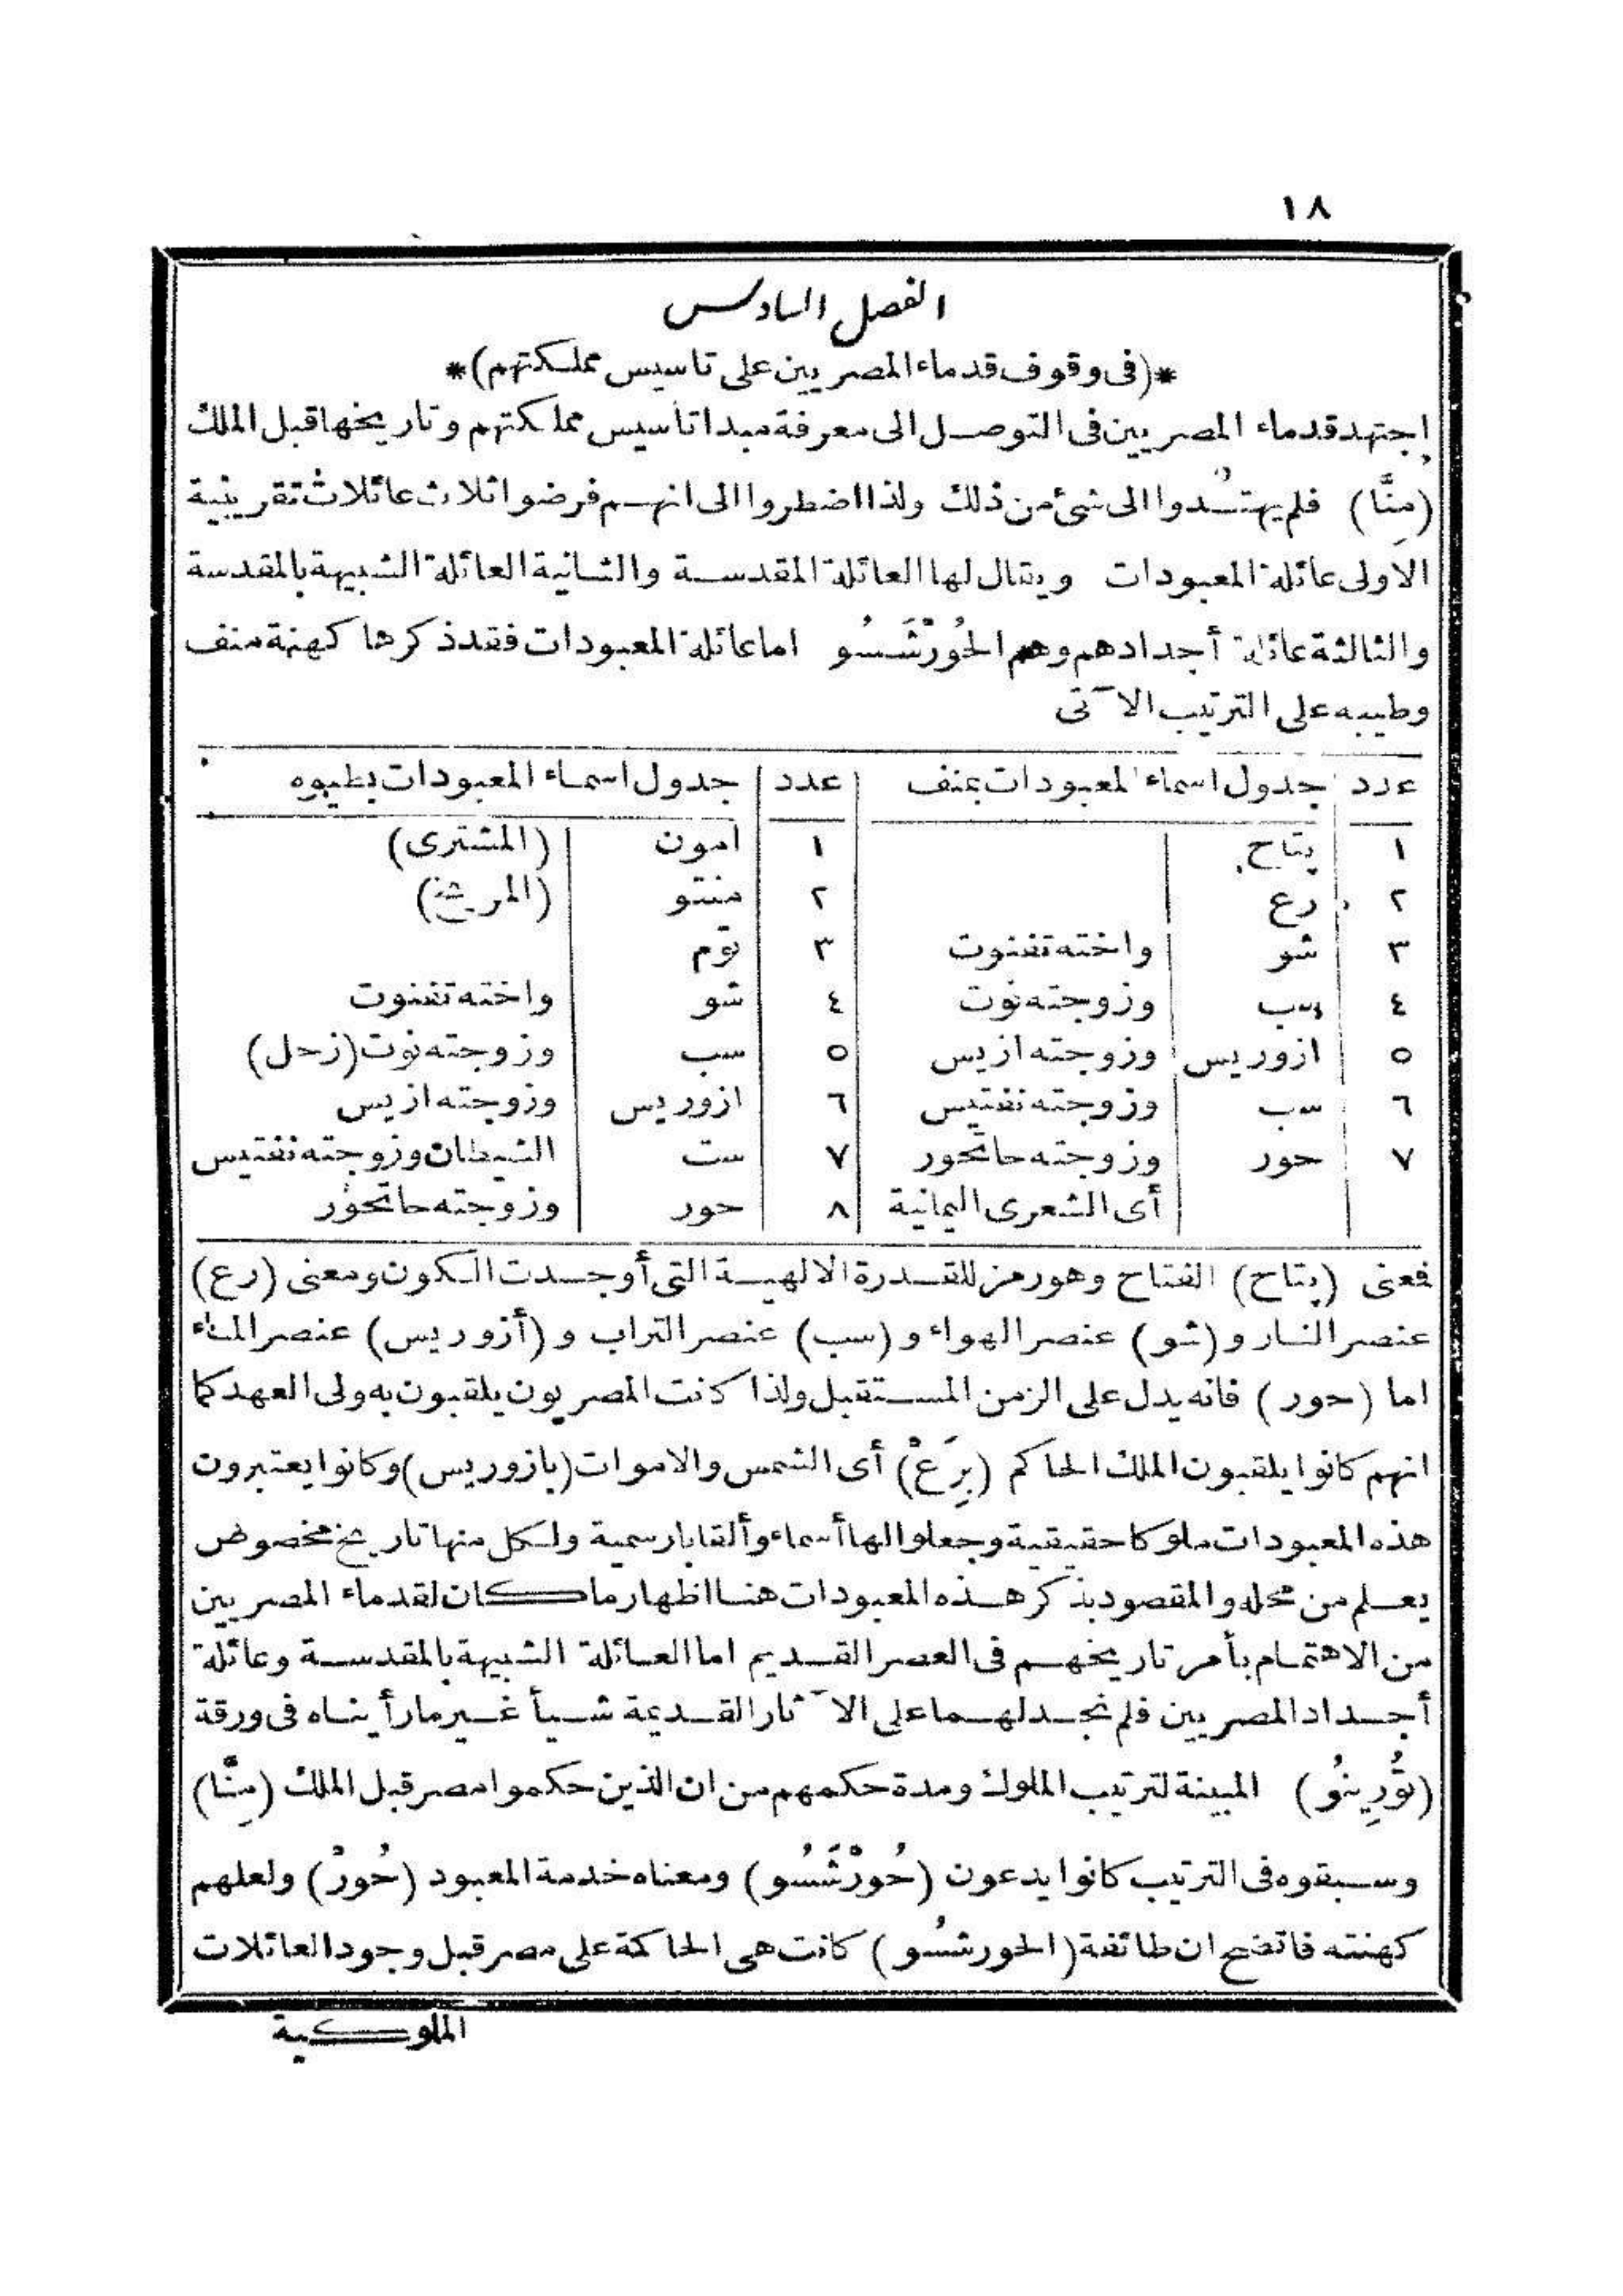 ١٨
الفصل السادس
*(فى وقوف قدماء المصريين على تاسيس مملكتهم)*
اجتهد قدماء المصريين فى التوصل الى معرفة مبدا تأسيس مملكتهم وتاريخها قبل الملك
(مِنَّا) فلم يهتدوا الى شئ من ذلك ولذا اضطروا الى انهم فرضوا ثلاث عائلات تقريبية
الاولى عائلة المعبودات ويقال لها العائلة المقدسة والثانية العائلة الشبيهة بالمقدسة
والثالثة عائلة أجدادهم وهم الحُورْشَسُو اما عائلة المعبودات فقد ذكرها كهنة منف
وطيبه على الترتيب الآتى
عدد جدول اسماء المعبودات بمنف عدد جدول اسماء المعبودات بطيوه
١ پتاح ١ امون (المشترى)
٢ رع ٢ منتو (المريخ)
٣ شو واخته تفنوت ٣ توم
٤ سب وزوجته نوت ٤ شو واخته تفنوت
٥ ازوريس وزوجته ازيس ٥ سب وزوجته نوت (زحل)
٦ سب وزوجته نفتيس ٦ ازوريس وزوجته ازيس
٧ حور وزوجته حاتحور ٧ ست الشيطان وزوجته نفتيس
أى الشعرى اليمانية ٨ حور وزوجته حاتحور
فمعنى (پتاح) الفتاح وهو رمز للقدرة الالهية التى أوجدت الكون ومعنى (رع)
عنصر النار و (شو) عنصر الهواء و (سب) عنصر التراب و (أزوريس) عنصر الماء
اما (حور) فانه يدل على الزمن المستقبل ولذا كانت المصريون يلقبون به ولى العهد كما
انهم كانوا يلقبون الملك الحاكم (بِرَعْ) أى الشمس والاموات (بازوريس) وكانوا يعتبرون
هذه المعبودات ملوكا حقيقية وجعلوا لها أسماء وألقابا رسمية ولكل منها تاريخ مخصوص
يعلم من محله والمقصود بذكر هذه المعبودات هنا اظهار ما كان لقدماء المصريين
من الاهتمام بأمر تاريخهم فى العصر القديم اما العائلة الشبيهة بالمقدسة وعائلة
أجداد المصريين فلم نجد لهما على الآثار القديمة شيأ غير ما رأيناه فى ورقة
(تُورِينُو) المبينة لترتيب الملوك ومدة حكمهم من ان الذين حكموا مصر قبل الملك (مِنَّا)
وسبقوه فى الترتيب كانوا يدعون (حُورْشَسُو) ومعناه خدمة المعبود (حُورْ) ولعلهم
كهنته فاتضح ان طائفة (الحورشسُو) كانت هى الحاكمة على مصر قبل وجود العائلات
الملوكية